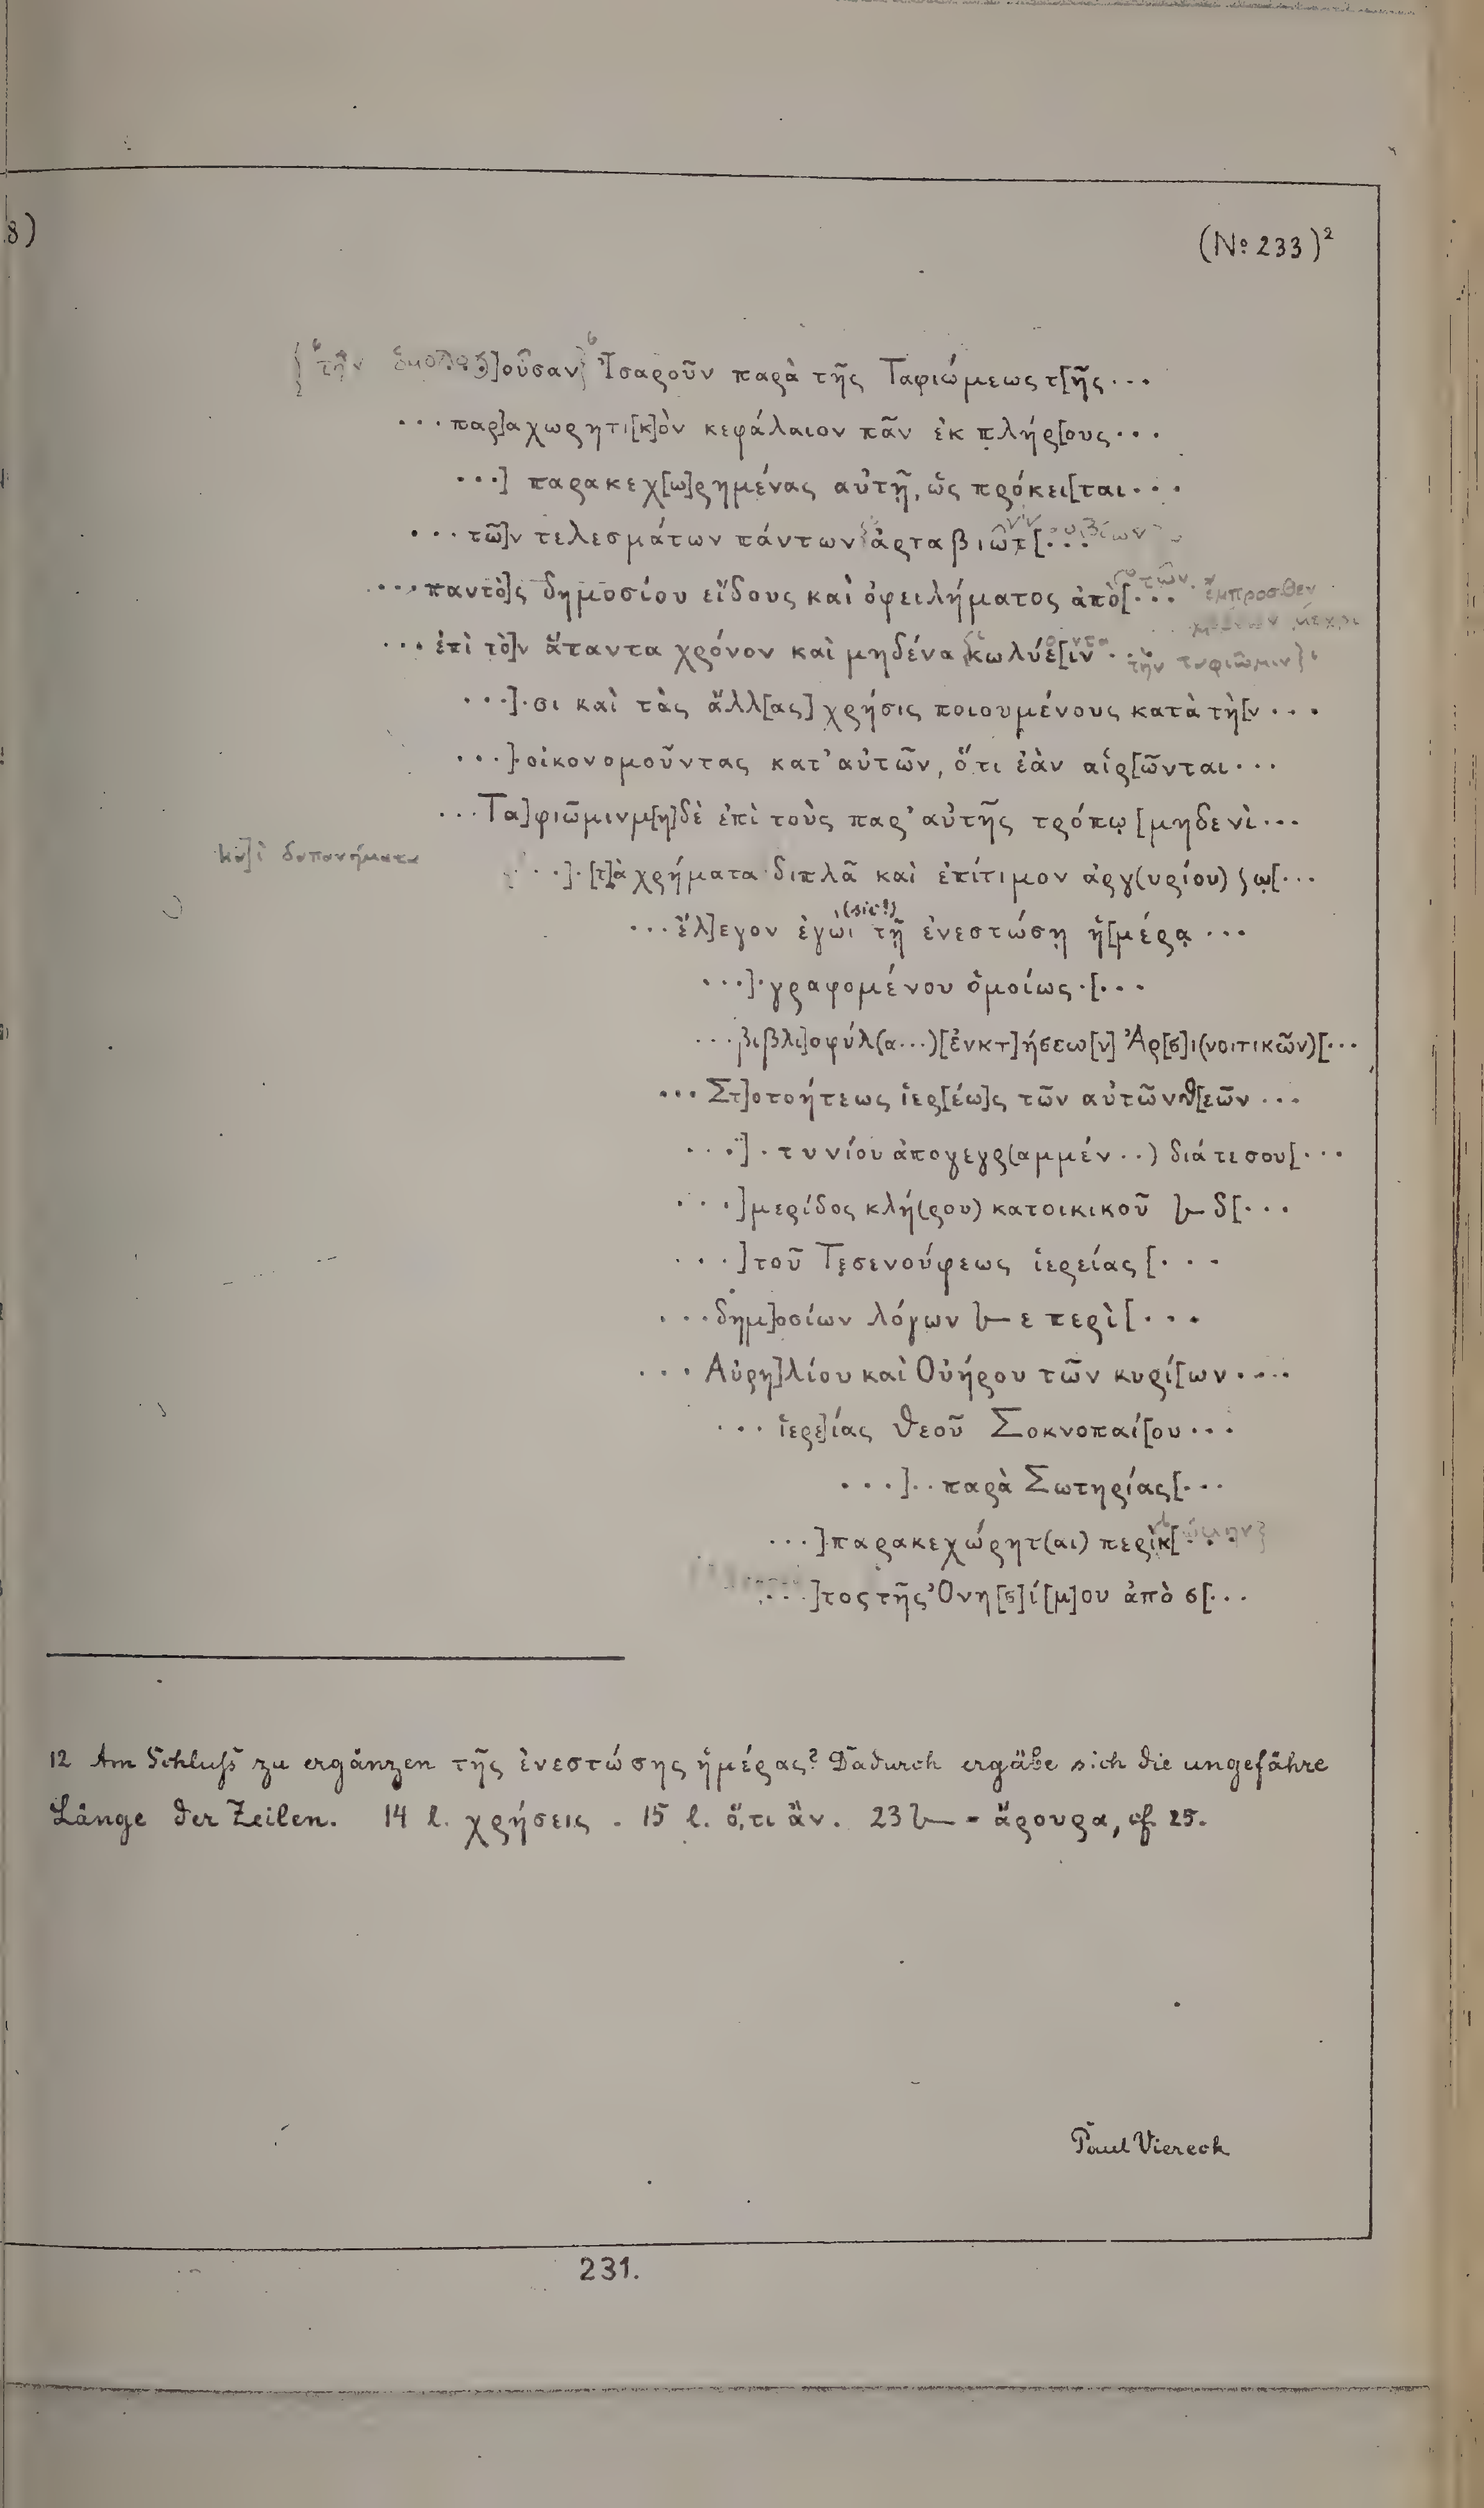 8)
(No 233)²
τὴν ὁμολογ]οῦσαν Ἰσαροῦν παρὰ τῆς Ταφιώμεως τ[ῆς...
...παρ]αχωρητι[κ]ὸν κεφάλαιον πᾶν ἐκ πλήρ[ους...
...] παρακεχ[ω]ρημένας αὐτῇ, ὡς πρόκει[ται...
...τῶ]ν τελεσμάτων πάντων ἀρταβιωτ[...
...παντὸ]ς δημοσίου εἴδους καὶ ὀφειλήματος ἀπὸ[... τῶν ἔμπροσθεν
μέχρι
...ἐπὶ τὸ]ν ἅπαντα χρόνον καὶ μηδένα κωλύε[ιν... τὴν Ταφιῶμιν
...].σι καὶ τὰς ἄλλ[ας] χρήσις ποιουμένους κατὰ τὴ[ν...
...].οἰκονομοῦντας κατ' αὐτῶν, ὅτι ἐὰν αἱρ[ῶνται...
...Τα]φιῶμιν μ[η]δὲ ἐπὶ τοὺς παρ' αὐτῆς τρόπῳ [μηδενὶ...
κα]ὶ δαπανήματα ...].[τ]ὰ χρήματα διπλᾶ καὶ ἐπίτιμον ἀργ(υρίου) ς ω[...
...ἔλ]εγον ἐγὼι (sic!) τῇ ἐνεστώσῃ ἡ[μέρᾳ...
...].γραφομένου ὁμοίως.[...
...βιβλι]οφύλ(α...)[ἐνκτ]ήσεω[ν] Ἀρ[σ]ι(νοιτικῶν)[...
...Στ]οτοήτεως ἱερ[έω]ς τῶν αὐτῶν θ[εῶν...
...].τυνίου ἀπογεγρ(αμμέν..) διά τε σου[...
...]μερίδος κλή(ρου) κατοικικοῦ 𐅵 δ[...
...]τοῦ Τεσενούφεως ἱερείας [...
...δημ]οσίων λόγων 𐅵 ε περὶ [...
...Αὐρη]λίου καὶ Οὐήρου τῶν κυρί[ων....
...ἱερε]ίας θεοῦ Σοκνοπαί[ου...
...]..παρὰ Σωτηρίας[...
...]παρακεχώρητ(αι) περὶ κ[...
...]τος τῆς Ὀνη[σ]ί[μ]ου ἀπὸ σ[...
12 Am Schluß zu ergänzen τῆς ἐνεστώσης ἡμέρας? Dadurch ergäbe sich die ungefähre
Länge der Zeilen. 14 l. χρήσεις. 15 l. ὅ,τι ἄν. 23 𐅵 = ἄρουρα, cf. 25.
Paul Viereck
231.